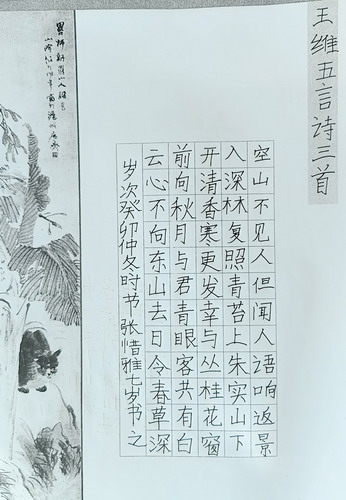 王维五言诗三首
空山不见人但闻人语响返景
入深林复照青苔上朱实山下
开清香寒更发幸与丛桂花窗
前向秋月与君青眼客共有白
云心不向东山去日令春草深
岁次癸卯仲冬时书 张惜雅七岁书之